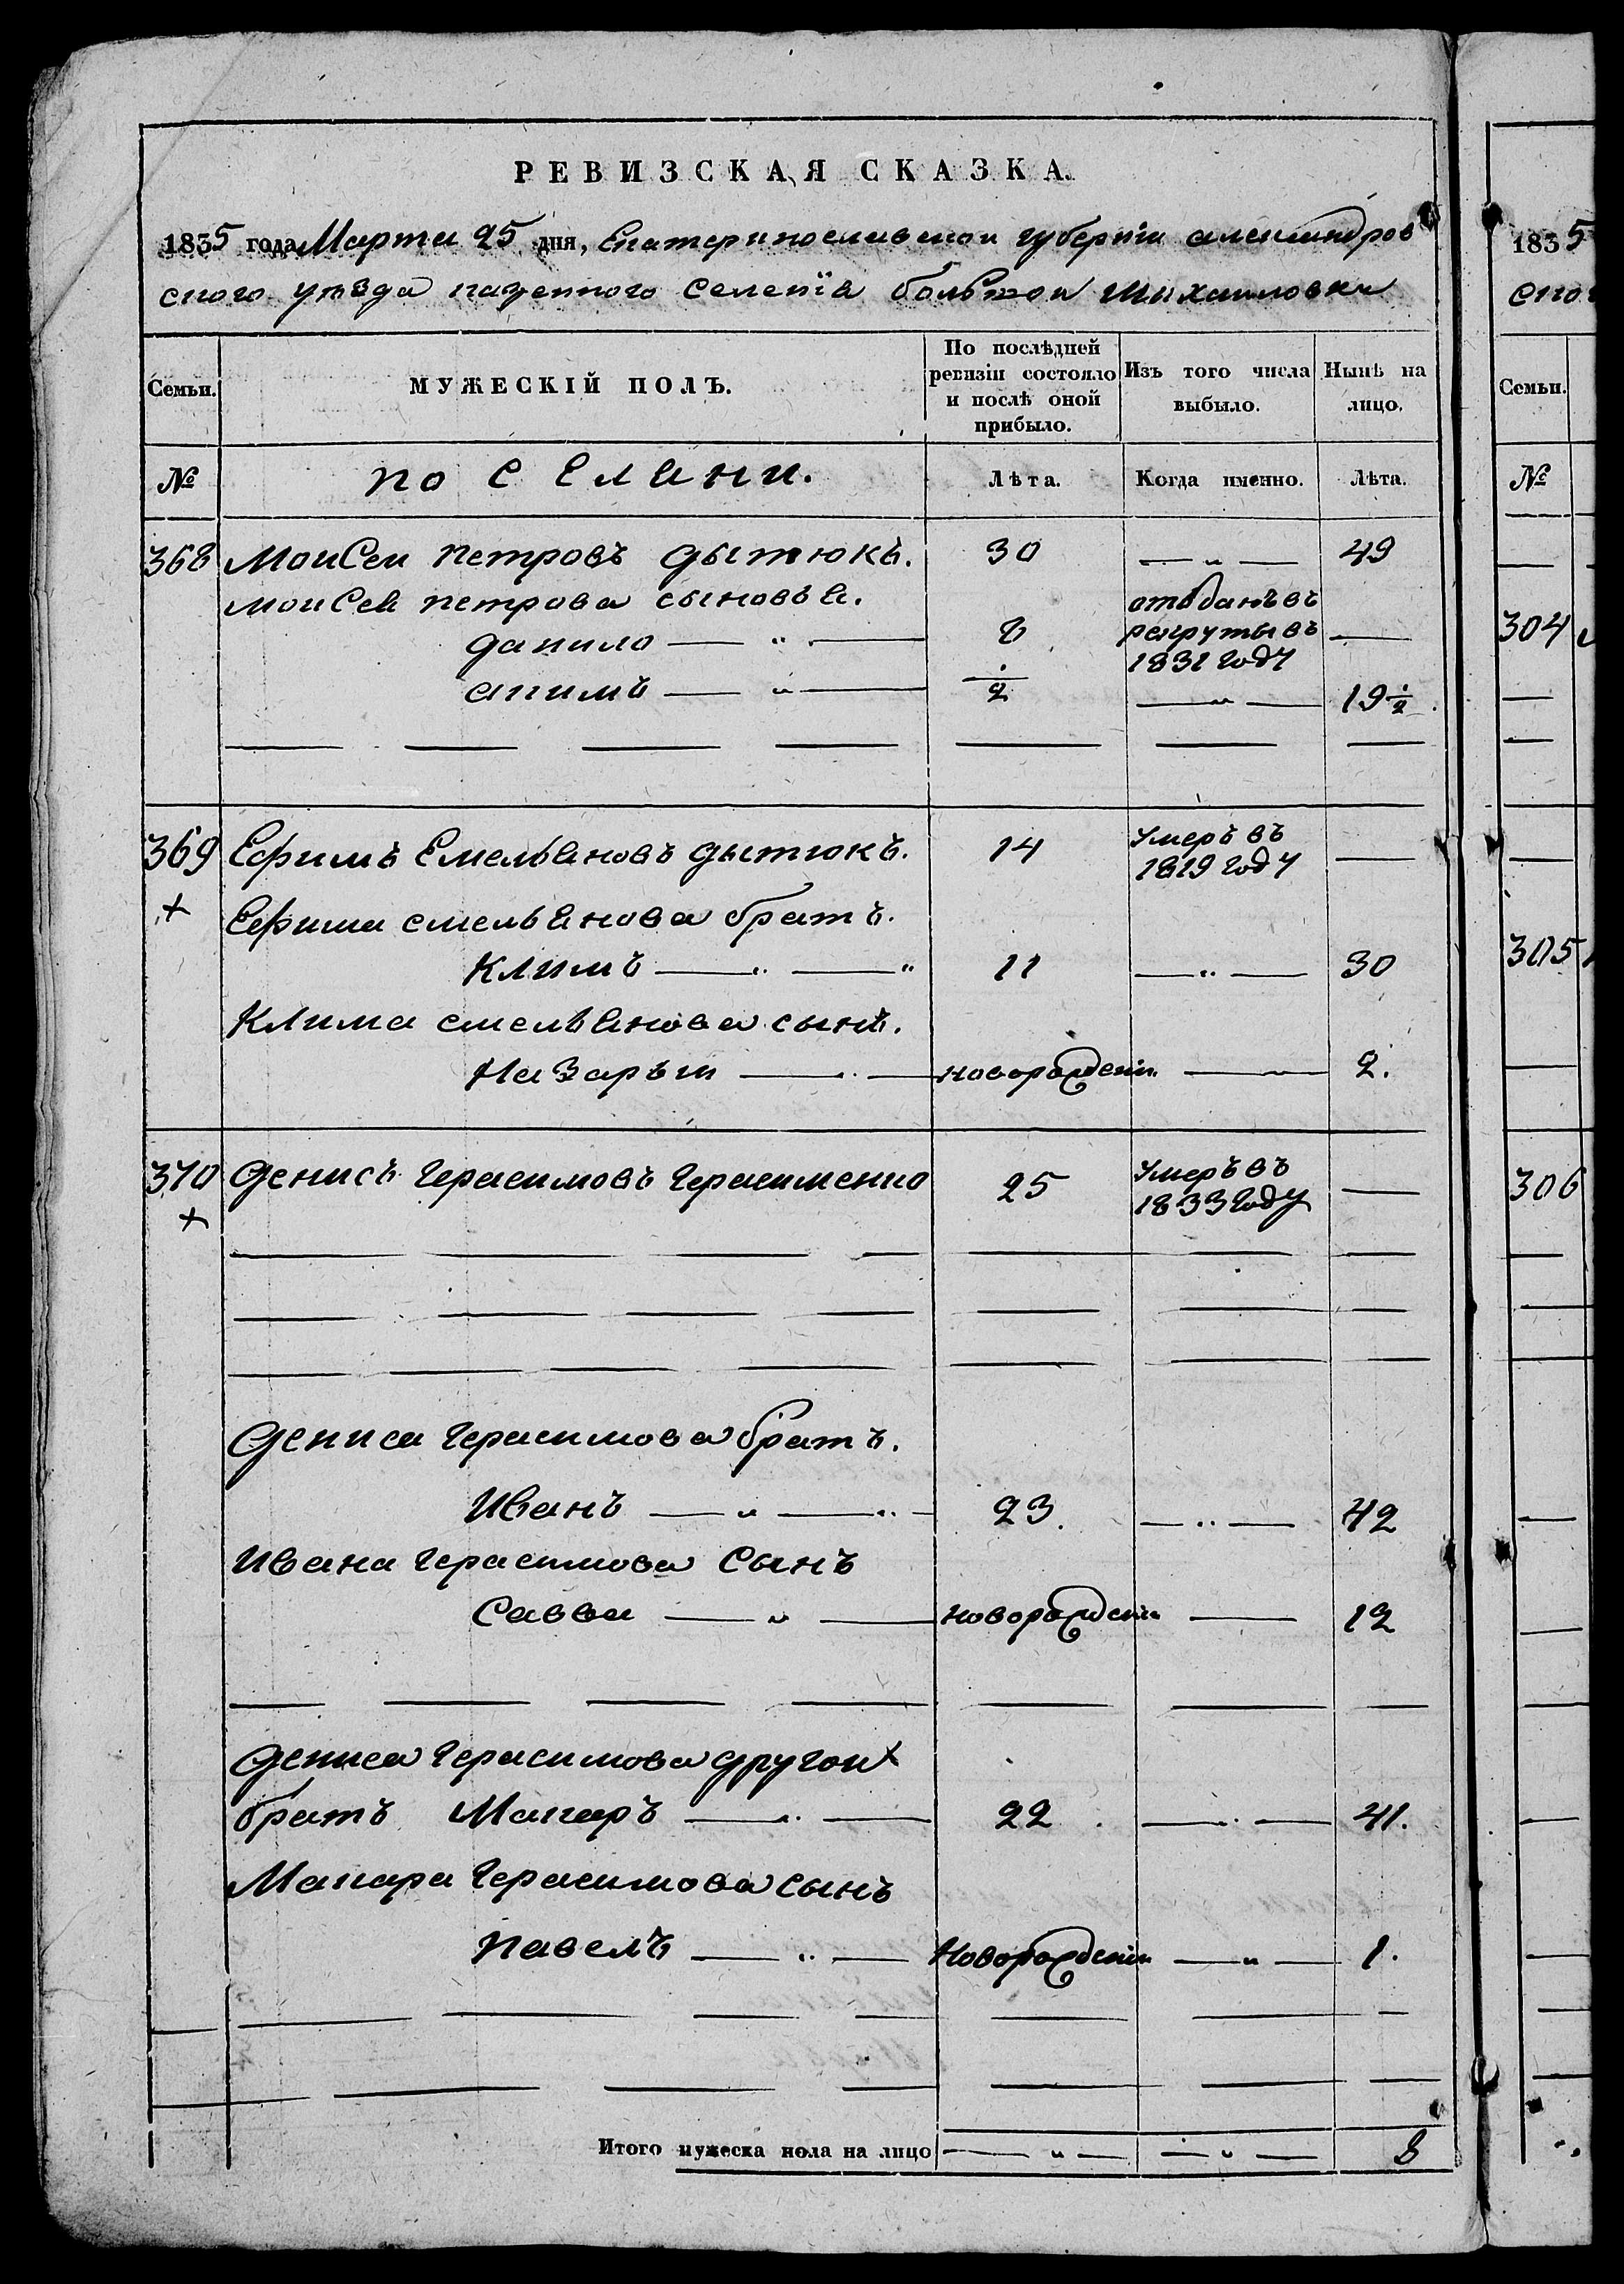 РЕВИЗСКАЯ СКАЗКА.
1835 года Марта 25 дня, Екатеринославской губерніи александров
ского уѣзда казенного селенїя большой Михаиловки
Семьи. МУЖЕСКІЙ ПОЛЪ. По послѣдней ревизіи состояло и послѣ оной прибыло. Изъ того числа выбыло. Нынѣ на лицо.
№ поселяни. Лѣта. Когда именно. Лѣта.
368 Моисеи петровъ дытюкъ. 30 — „ — 49
моисея петрова сыновья.
данило — „ — 8 отъданъ въ рекруты въ 1831 году —
акимъ — „ — 1/2 — „ — 19 1/2
369 Ефимъ Емельяновъ дытюкъ. 14 умеръ въ 1819 году —
+
Ефима емельянова братъ.
Климъ — „ — „ 11 — „ — 30
Клима емельянова сынъ.
Назарьи — „ — новорожденін — „ — 2.
370 Денисъ герасимовъ герасименко 25 умеръ въ 1833 году —
+
Дениса герасимова братъ.
Иванъ — „ — „ — 23. — „ — 42
Ивана герасимова сынъ
Савва — „ — новорожденін — 12
Дениса герасимова другои
братъ Макаръ — „ — 22 — „ — 41.
Макара герасимова сынъ
павелъ — „ — Новорожденін — „ — 1.
Итого мужеска пола на лицо — „ — — „ — 8
1835
ског
Семьи.
№
304
305
306